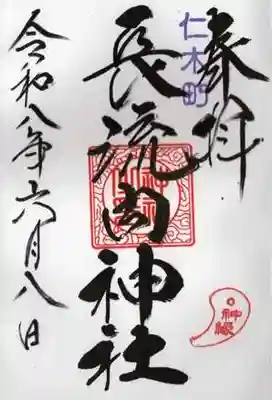 奉拝
仁木町
長流尚神社
令和八年六月八日
神縁